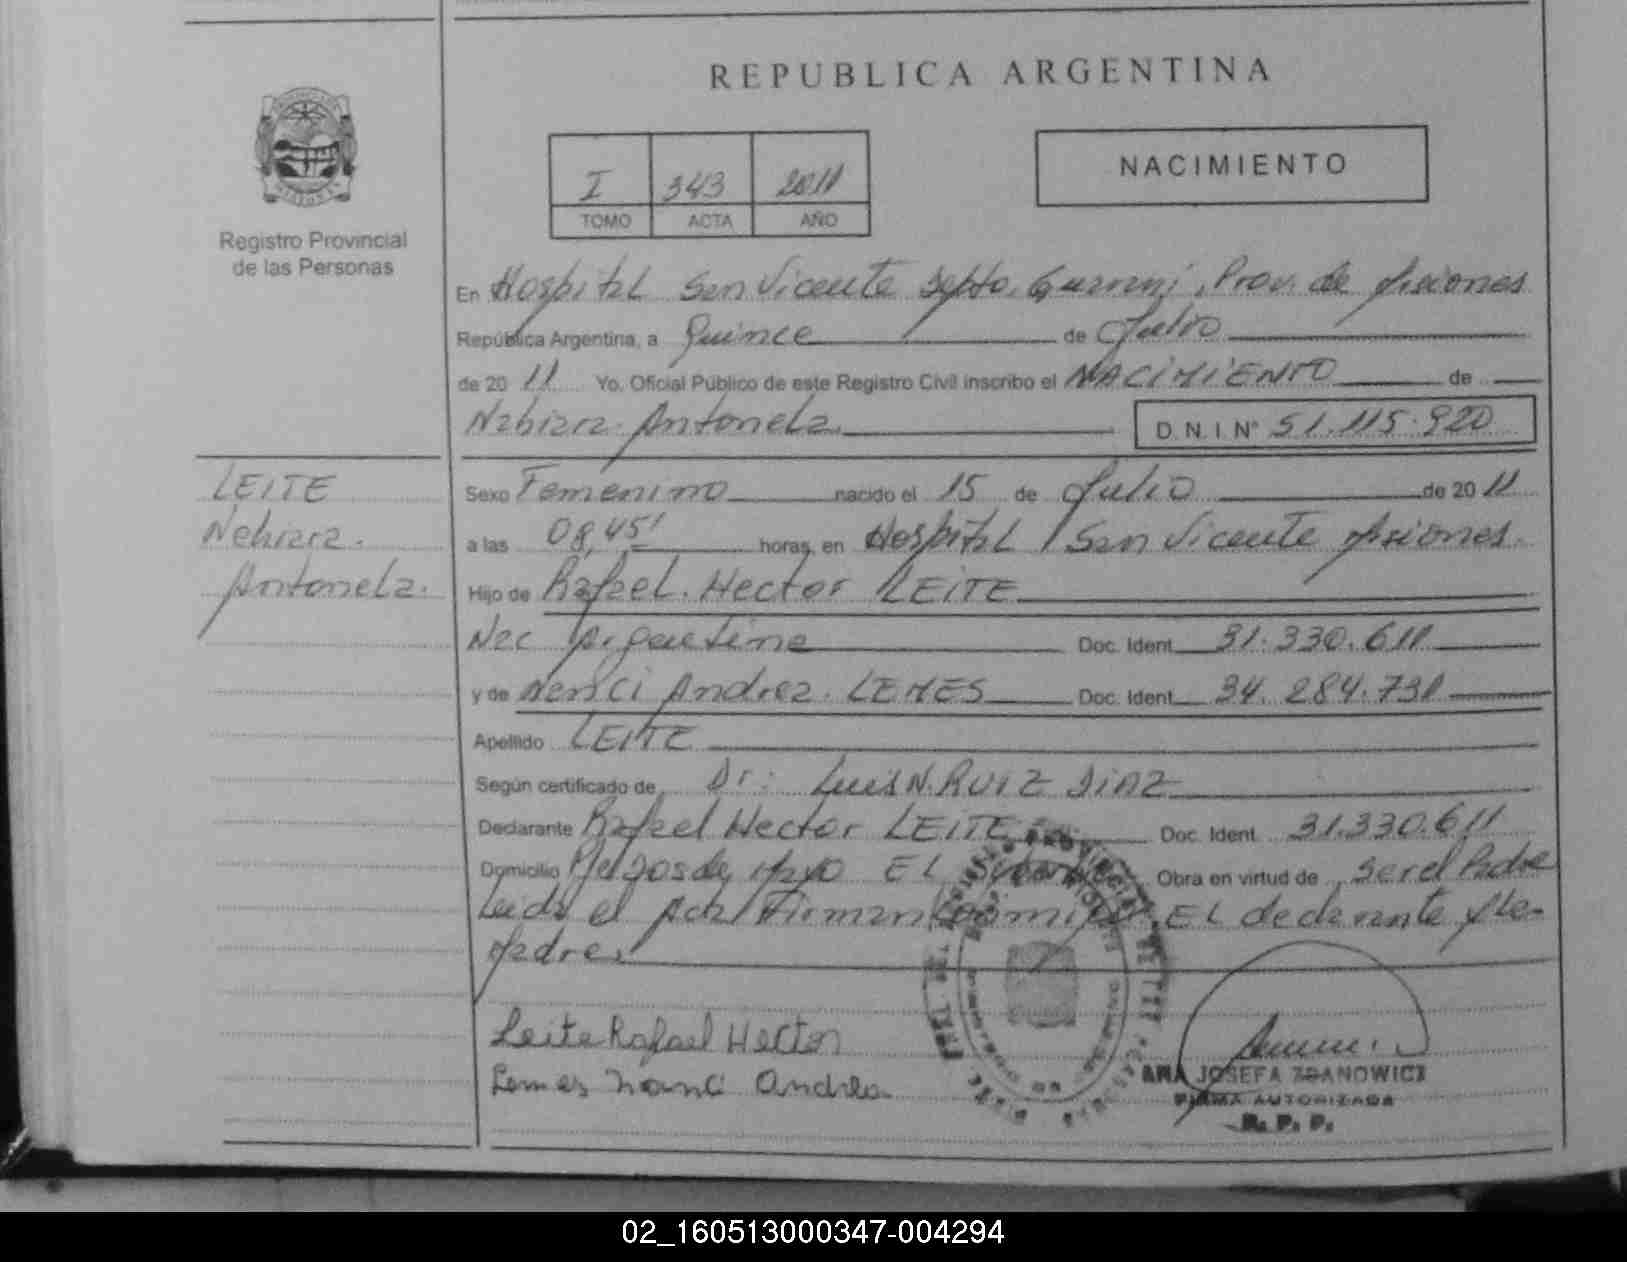 REPUBLICA ARGENTINA
I 343 2011
TOMO ACTA AÑO
NACIMIENTO
Registro Provincial
de las Personas
En Hospital San Vicente Dpto. Guarani, Prov. de Misiones
República Argentina, a Quince de Julio
de 20 11 Yo, Oficial Público de este Registro Civil inscribo el NACIMIENTO de
Nahiara Antonela
D. N. I. N° 51.115.920
LEITE
Nahiara
Antonela.
Sexo Femenino nacido el 15 de Julio de 20 11
a las 08,45' horas, en Hospital San Vicente Misiones.
Hijo de Rafael Hector LEITE
Nac Argentina Doc. Ident. 31.330.611
y de Nanci Andrea LEMES Doc. Ident. 34.284.731
Apellido LEITE
Según certificado de Dr: Luis N. RUIZ DIAZ
Declarante Rafael Hector LEITE Doc. Ident. 31.330.611
Domicilio de Mayo EL Obra en virtud de ser el Padre
Leida el Acta Firman EL declarante y la
Madre
Leite Rafael Hector
Lemes Nanci Andrea
ANA JOSEFA ZDANOWICZ
FIRMA AUTORIZADA
R. P. P.
02_160513000347-004294